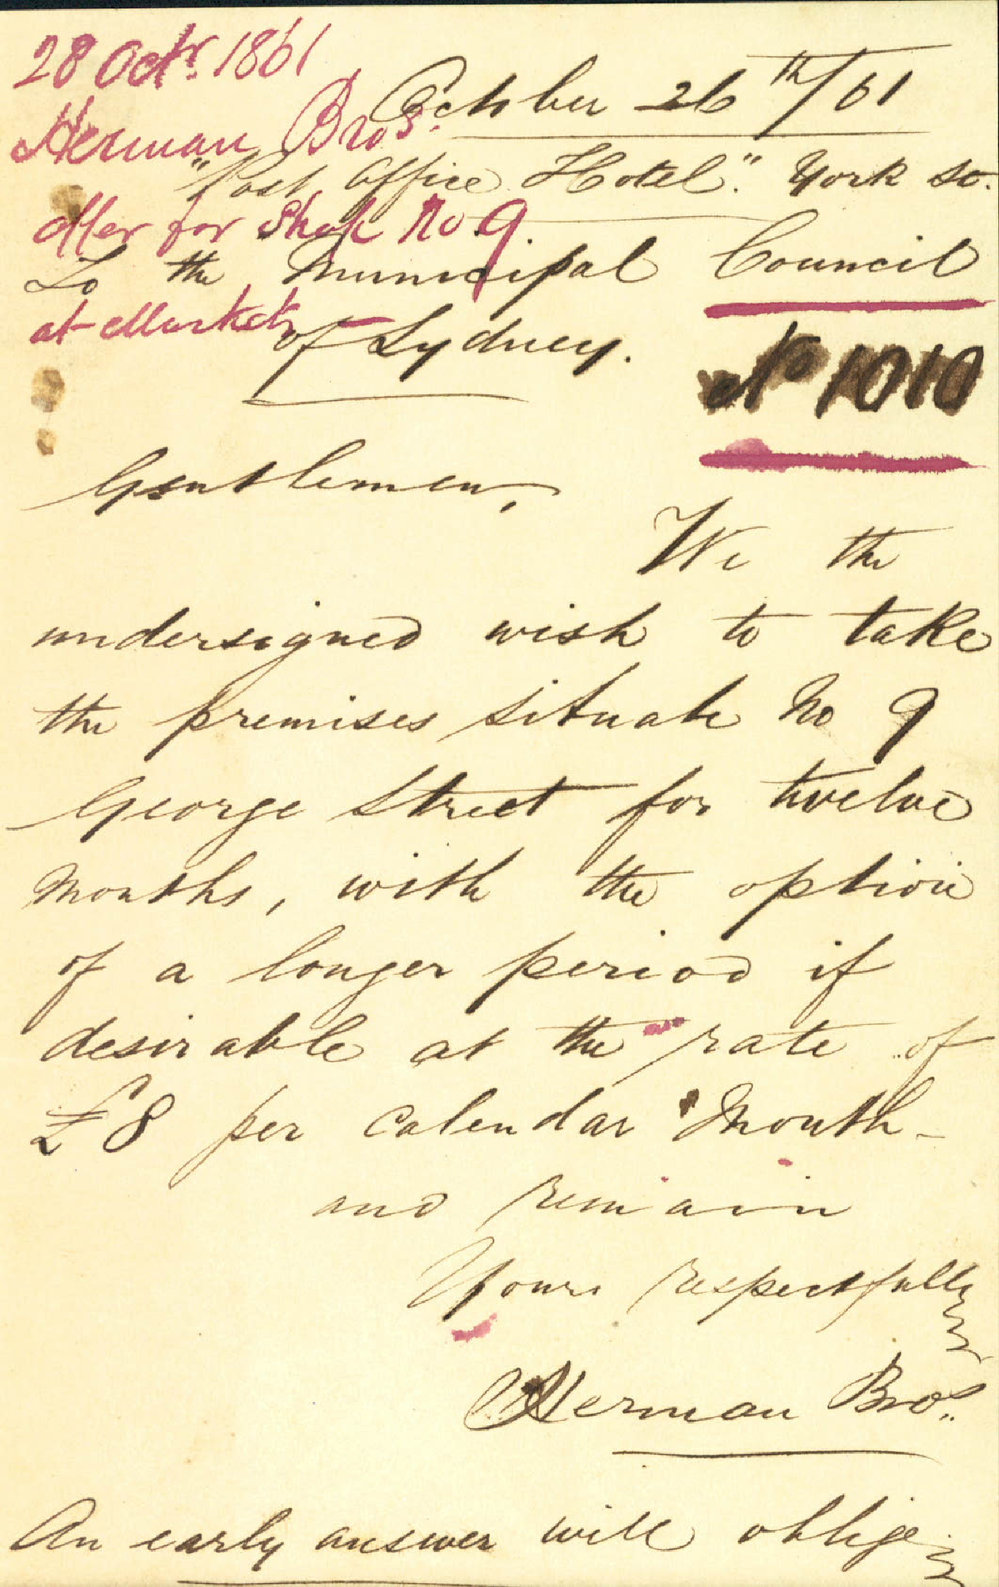 28 Octr. 1861
Herman Bros.
offer for Shop No 9
at Markets
October 26th/61
"Post Office Hotel". York St.
To the Municipal Council
of Sydney.
No 1010
Gentlemen,
We the
undersigned wish to take
the premises situate No 9
George Street for twelve
months, with the option
of a longer period if
desirable at the rate of
£8 per calendar Month -
and remain
Yours respectfully
Herman Bros.
An early answer will oblige